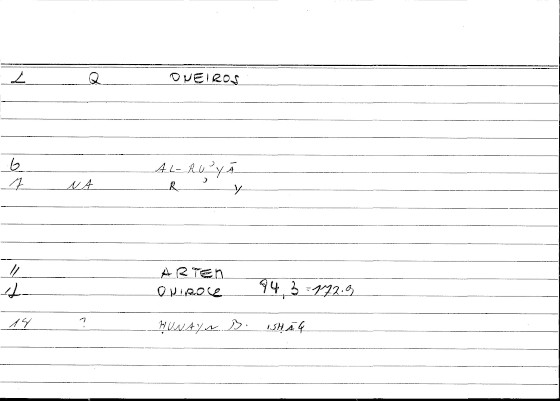 1 Q ONEIROS
6 AL-RUʾYĀ
7 NA R ʾ Y
11 ARTEM
12 ONIROCR 94,3 = 172.9
14 ? ḤUNAYN B. ISḤĀQ